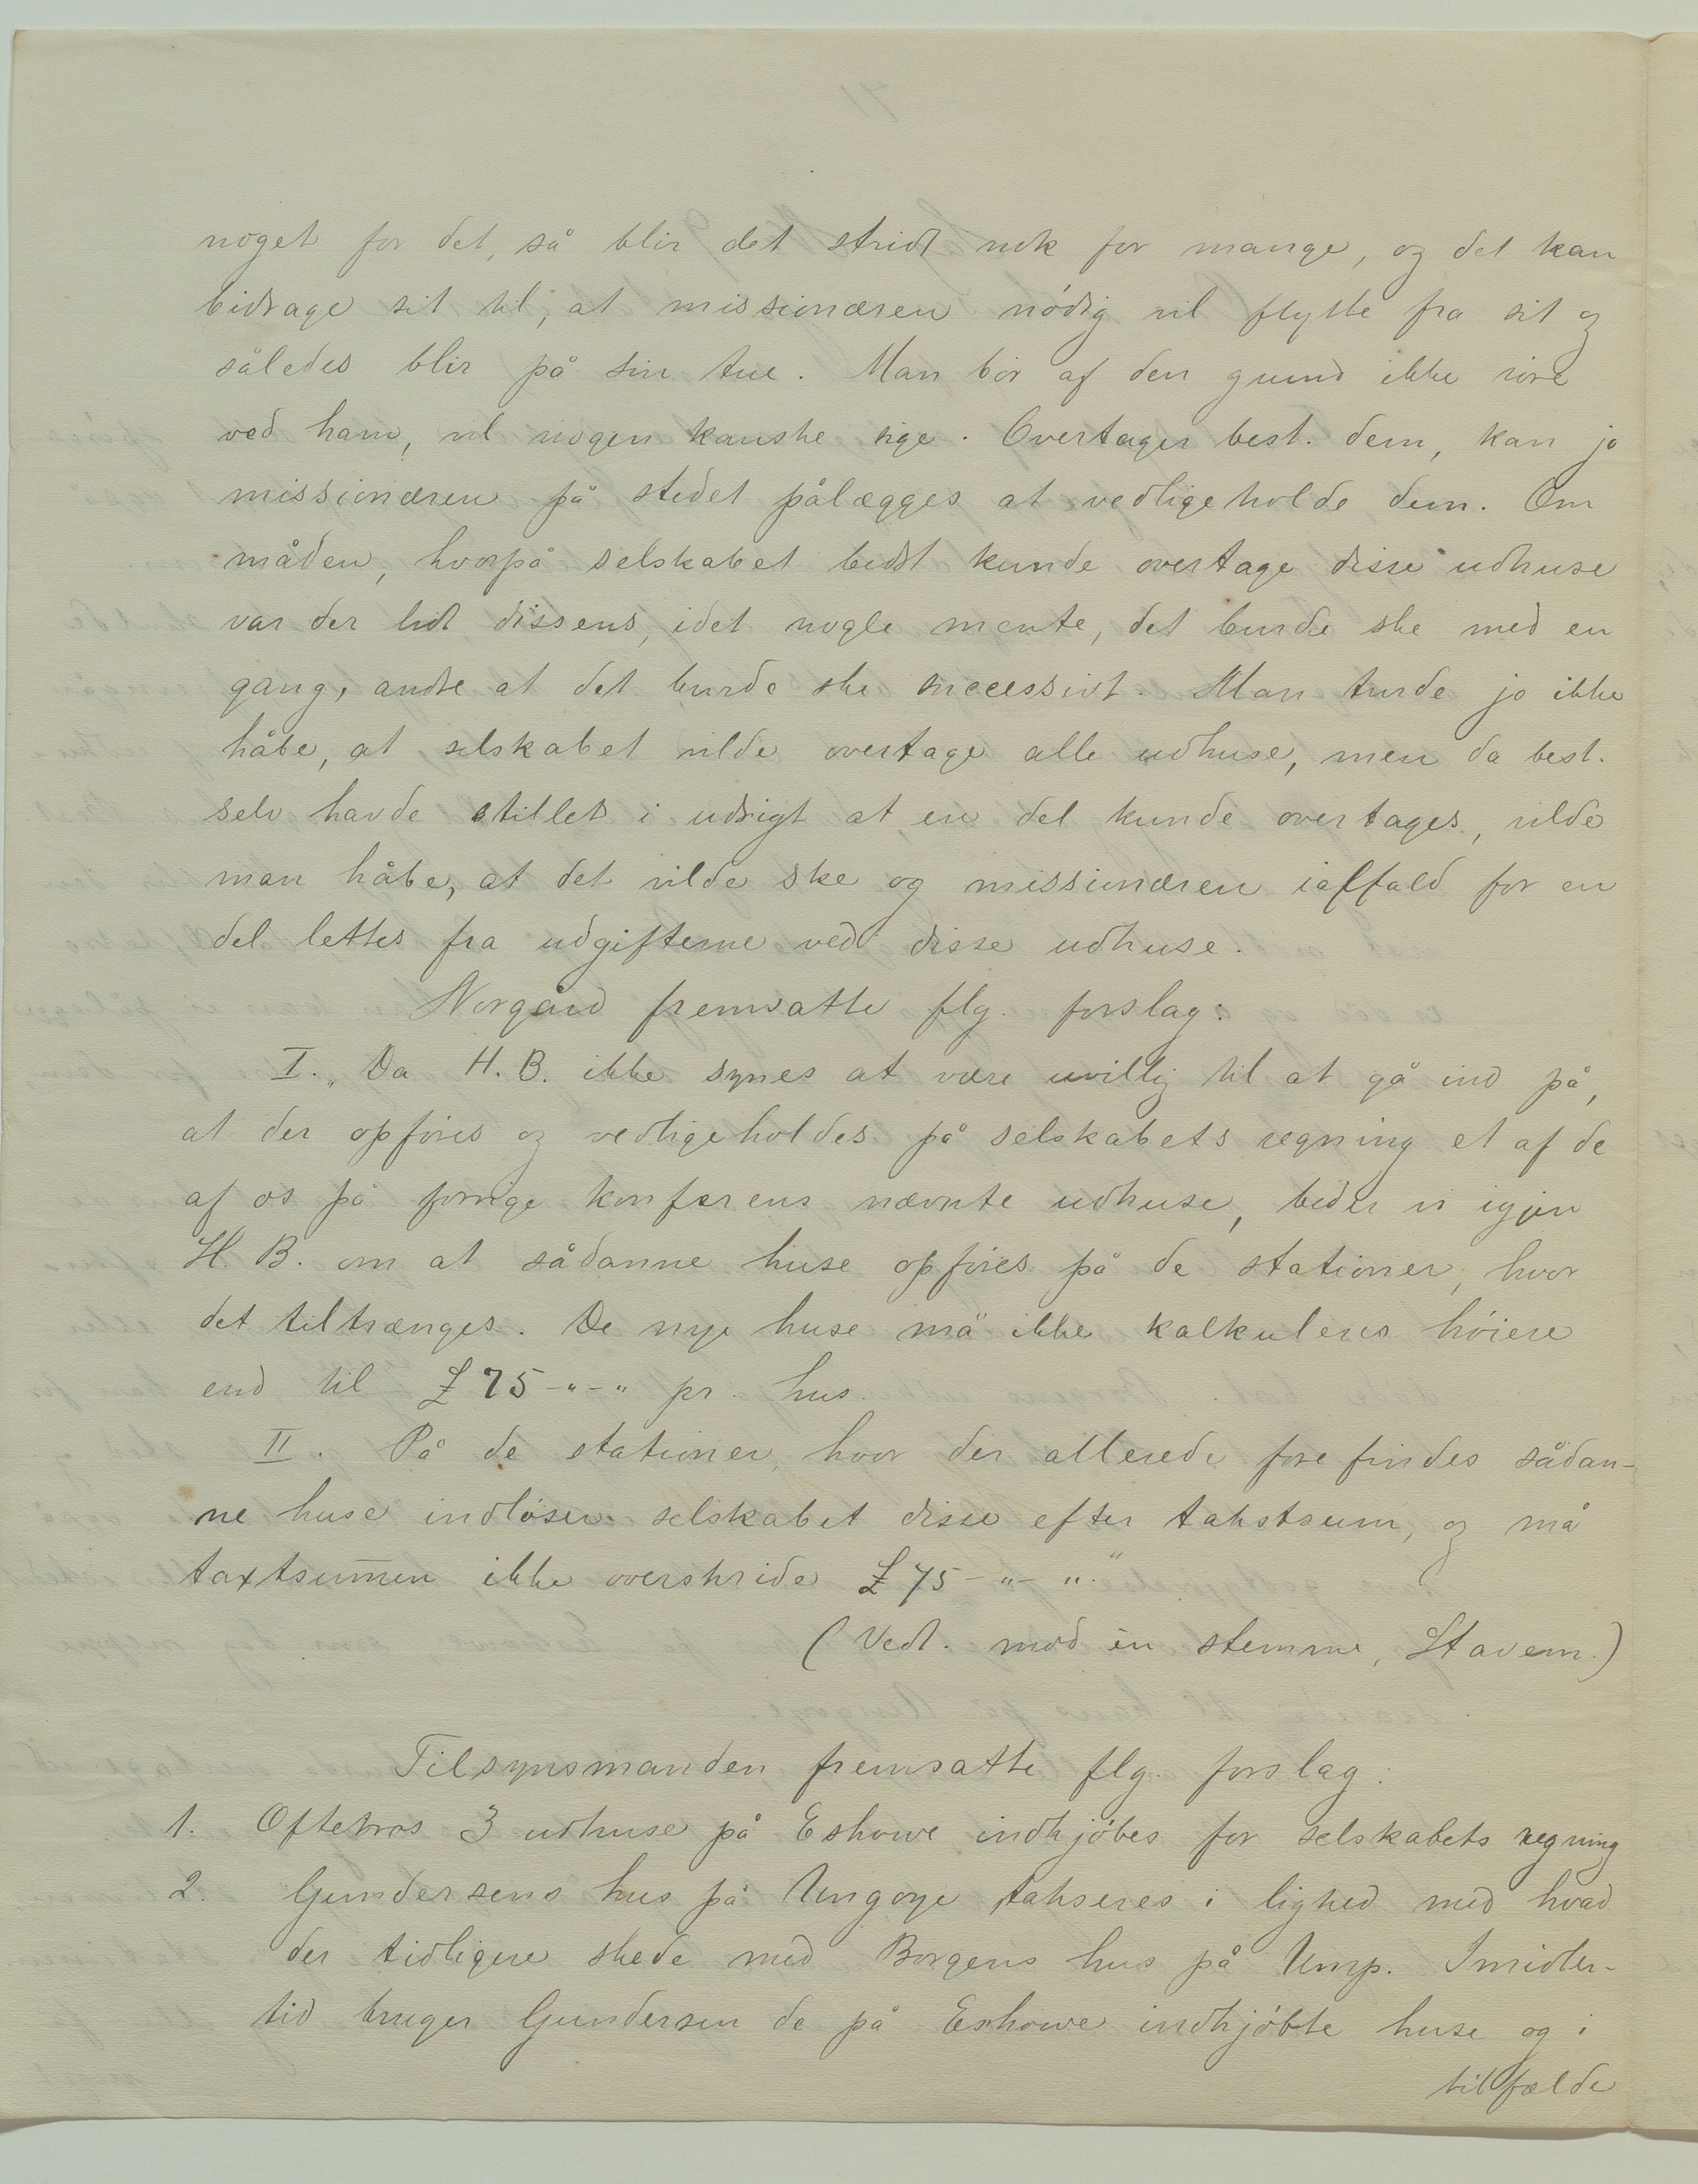 noget for det, så blir det stridt nok for mange, og det kan
bidrage sit til, at missionæren nódig vil flytte fra sit og
således blir på sin tue. Man bór af den grund ikke róre
ved ham, vil nogen kanske sige. Overtager best. dem, kan jo
missionæren på stedet pålægges at vedligeholde dem. Om
måden, hvorpå selskabet bedst kunde overtage disse udhuse
var der lidt dissens, idet nogle mente, det burde ske med en
gang, andre at det burde ske successivt. Man turde jo ikke
håbe, at selskabet vilde overtage alle udhuse, men da best.
selv havde stillet i udsigt at en del kunde overtages, vilde
man håbe, at det vilde ske og missionæren ialfald for en
del lettes fra udgifterne ved disse udhuse.
Norgård fremsatte flg. forslag:
I. „Da H. B. ikke synes at være uvillig til at gå ind på,
at der opfóres og vedligeholdes på selskabets regning et af de
af os på forrige konferens nævnte udhuse, beder vi igjen
H. B. om at sådanne huse opfóres på de stationer, hvor
det tiltrænges. De nye huse må ikke kalkuleres hóiere
end til £ 75-"-" pr. hus.
II. På de stationer, hvor der allerede forefindes sådan-
ne huse indlóser selskabet disse efter takstsum, og må
taxtsum̅en ikke overskride £ 75-"-".“
(Vedt. mod én stemme, Stavem.)
Tilsynsmanden fremsatte flg. forslag:
1. Oftebros 3 udhuse på Eshowe indkjóbes for selskabets regning
2. Gundersens hus på Ungoye takseres i lighed med hvad
der tidligere skede med Borgens hus på Ump. Imidler-
tid bruger Gundersen de på Eshowe indkjóbte huse og i
tilfælde